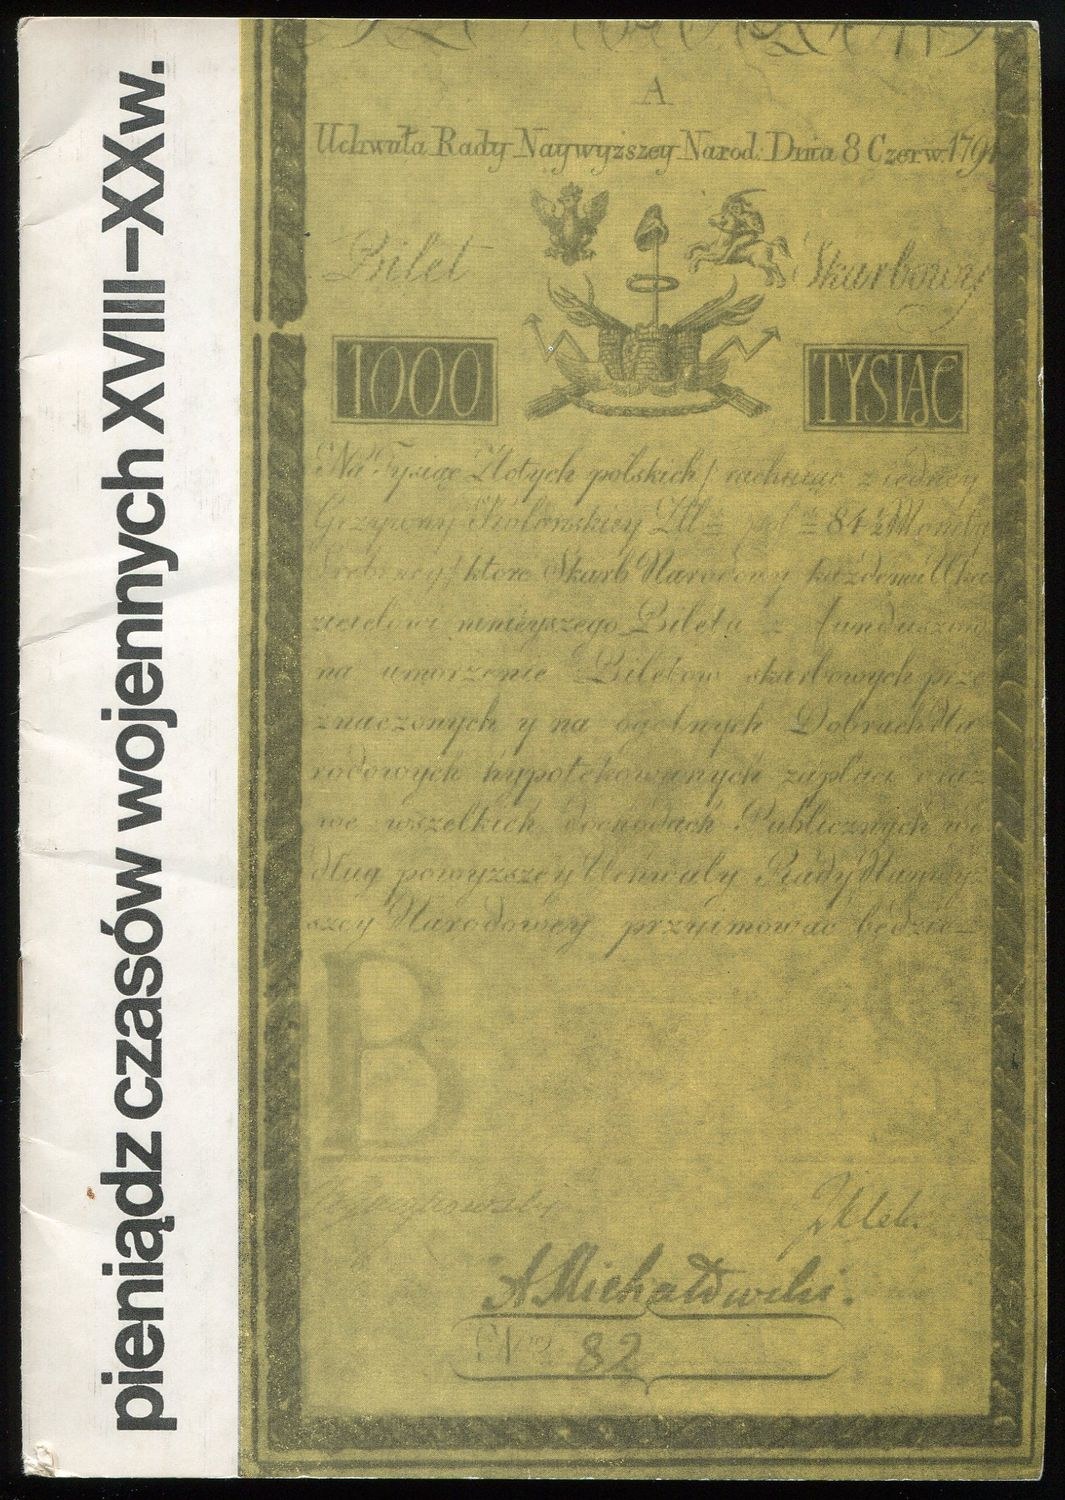 pieniądz czasów wojennych XVIII–XXw.
A
Uchwała Rady Naywyższey Narod. Dnia 8 Czerw. 1794
Bilet Skarbowy
1000 TYSIĄC
Na Tysiąc Złotych polskich / rachuiąc z iedney
Grzywny Kolońskiey 84 ½ Monety
Srebrney / ktore Skarb Narodowy każdemu Oka
zicielowi ninieyszego Biletu z funduszow
na umorzenie Biletow skarbowych prze
znaczonych y na ogolnych Dobrach Na
rodowych hypotekowanych zapłaci oraz
we wszelkich dochodach Publicznych we
dług powyższey Uchwały Rady Naywyż
szey Narodowey przyimować będzie
B
A Michałowski.
82